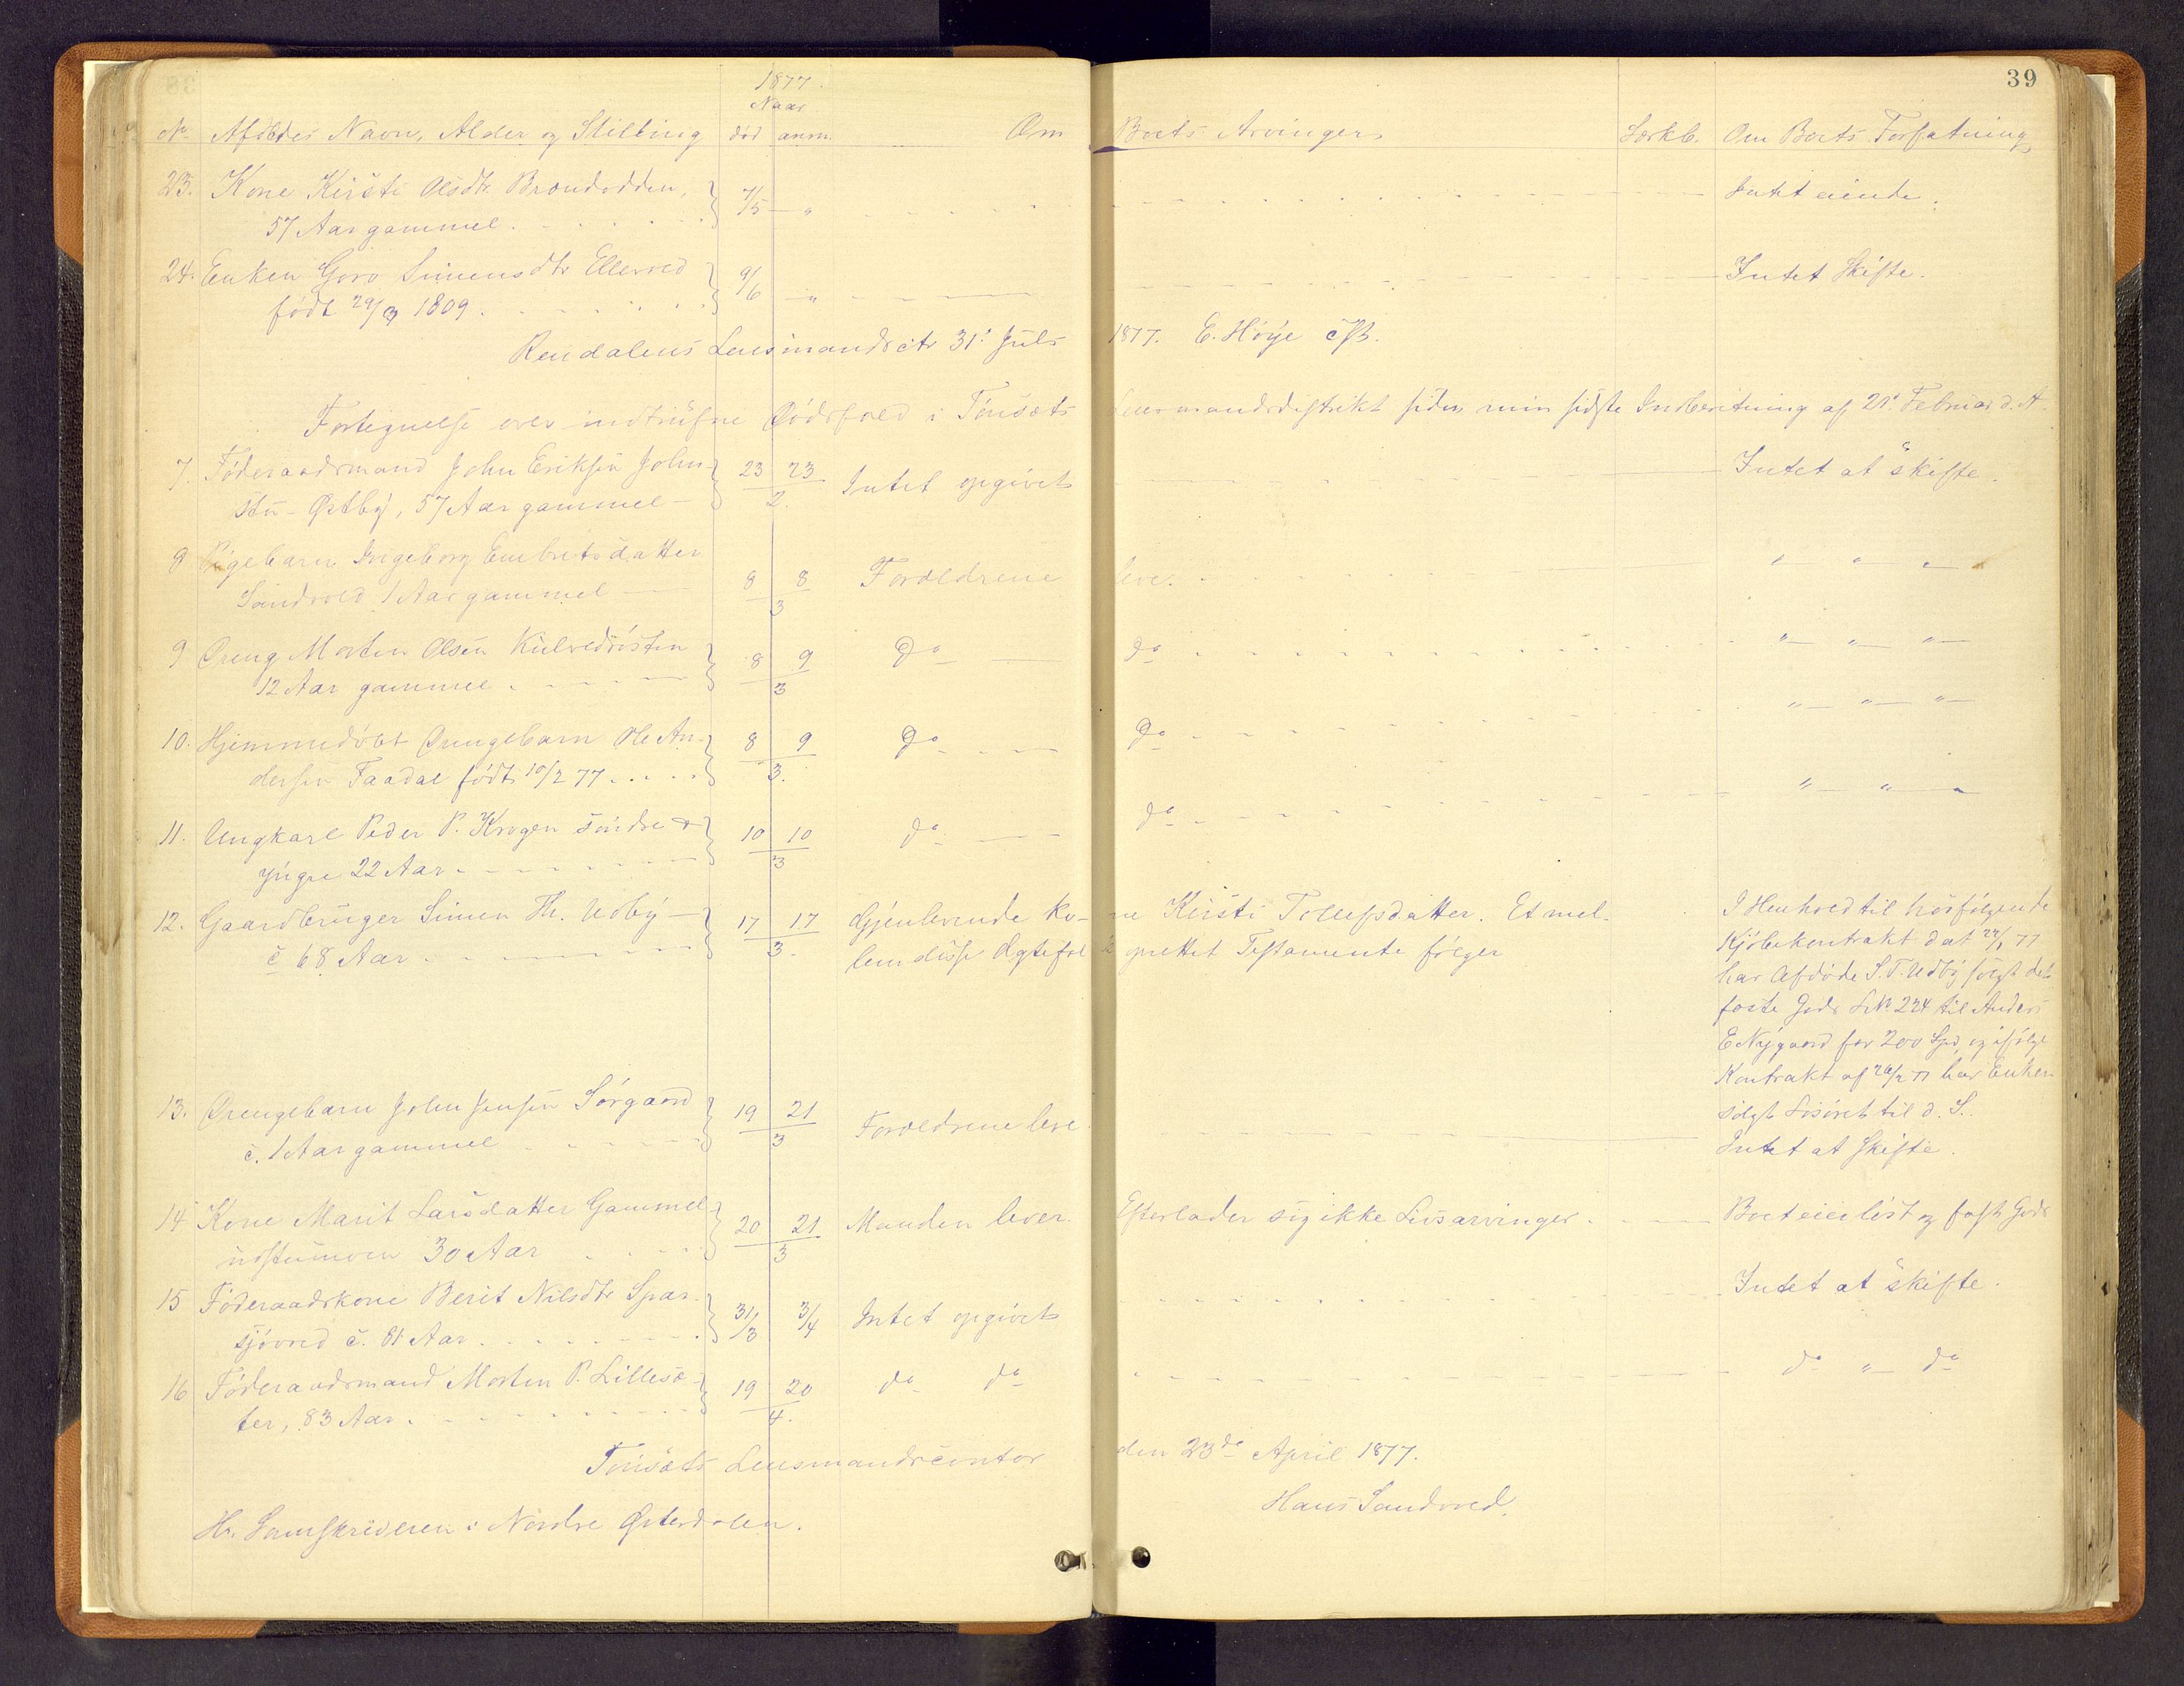 39
1877.
Naar
No Afdødes Navn, Alder og Stilling død anm. Om Boets Arvinger Særkb. Om Boets Forfatning
23. Kone Kirsti Olsdtr. Brændodden, 7/5 — „ Intet eiende.
57 Aar gammel.
24. Enken Goro Simensdtr Ellevold 9/6 — „ Intet Skifte.
født 29/3 1809.
Rendalens Lensmandsctr 31' Juli 1877. E. Høye cst.
Fortegnelse over indtrufne Dødsfald i Tønsæts Lensmandsdistrikt siden min sidste Indberetning af 21' Februar d. A.
7. Føderaadsmand John Eriksen John- 23 23 Intet opgivet Intet at skifte.
stu - Østby, 57 Aar gammel — 2.
8 Pigebarn Ingeborg Embretsdatter
Sandvold 1 Aar gammel — 8 8 Forældrene leve. „ „ „
3
9 Dreng Morten Olsen Kulvedrøsten 8 9 Do — do „ „ „
12 Aar gammel 3
10. Hjemmedøbt Drengebarn Ole An- 8 9 Do do „ „ „
dersen Faadal født 10/2 77 3.
11. Ungkarl Peder P. Krogen søndre & 10 10 do — do „ „ „
yngre 22 Aar 3
12. Gaardbruger Simen Th. Udby — 17 17 Gjenlevende Ko- ne Kirsti Tollefsdatter. Et mel- I Henhold til hosfølgende
c 68 Aar 3. lem disse Ægtefol k oprettet Testamente følger Kjøbekontrakt dat 24/1 77
har Afdøde S. T. Udby solgt det
faste Gods L.No 224 til Anders
E Nygaard for 200 Spd, og ifølge
Kontrakt af 26/2 77 har Enken
solgt Løsøret til d. S.
13. Drengebarn John Jensen Sørgaard 19 21 Forældrene leve.
c. 1 Aar gammel 3 Intet at skifte.
14 Kone Marit Larsdatter Gammel- 20 21 Manden lever. Efterlader sig ikke Livsarvinger. Boet eier løst og fast Gods
udstumoen 30 Aar 3
15 Føderaadskone Berit Nilsdtr Spar- 31/3 3/4 Intet opgivet Intet at skifte.
sjøvold c. 81 Aar
16 Føderaadsmand Morten P. Lillesæ- 19 20 do do do „ do
ter, 83 Aar. 4.
Tønsæts Lensmandscontor den 23de April 1877.
Hans Sandvold.
Hr. Sorenskriveren i Nordre Østerdalen.